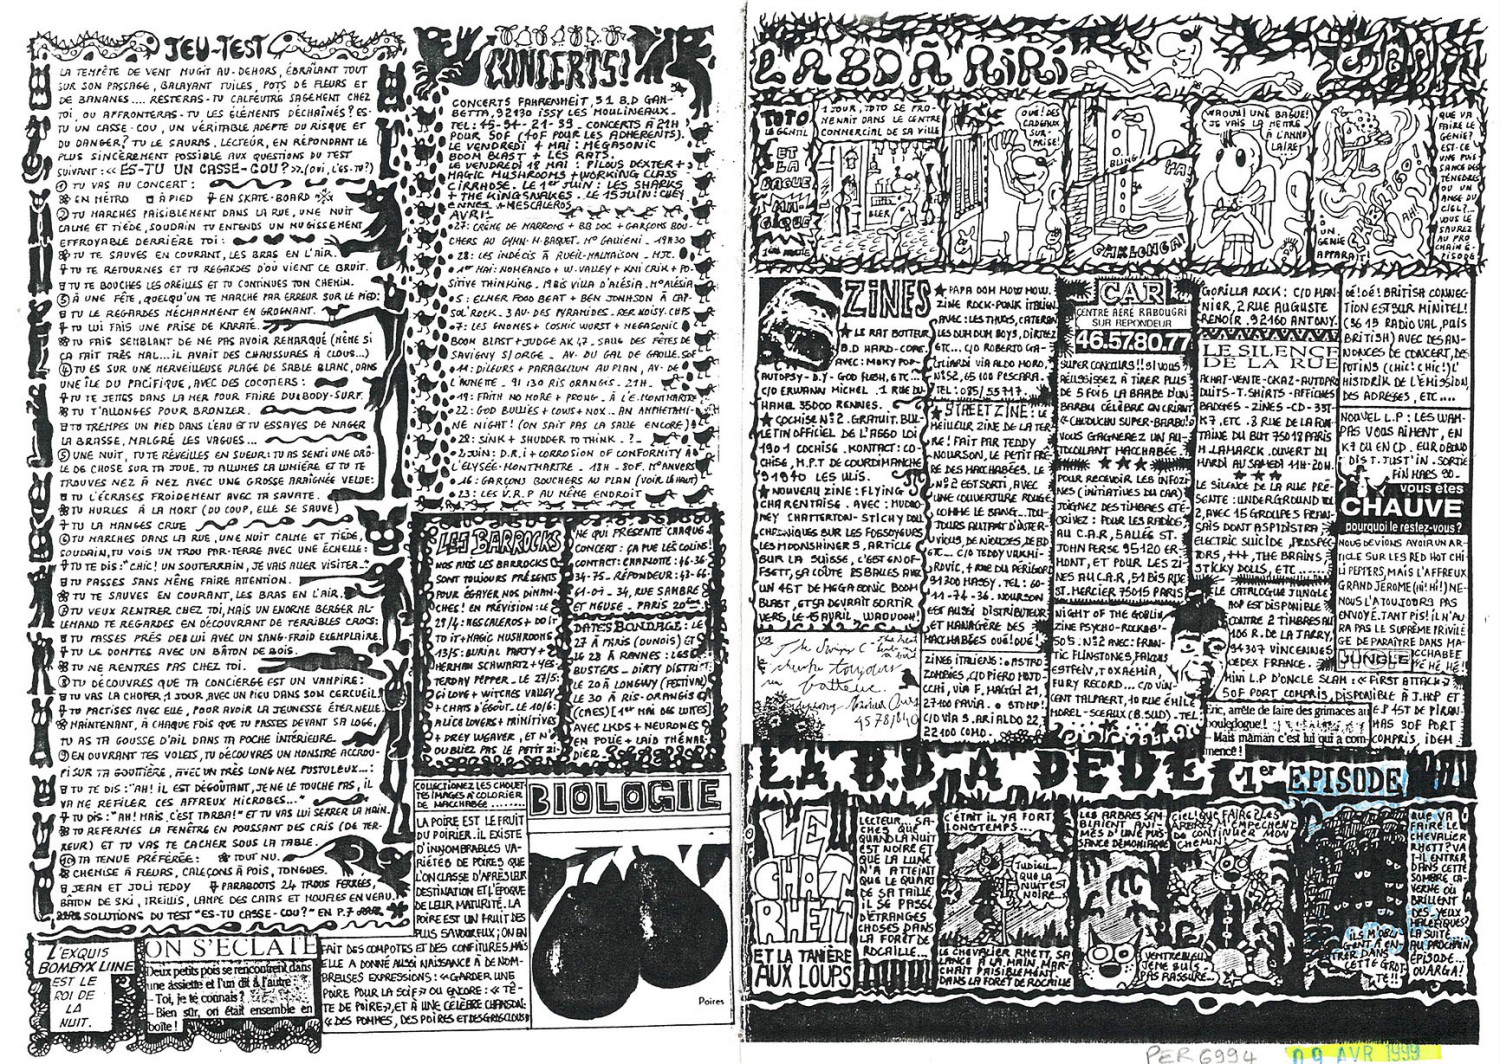 JEU-TEST
LA TEMPÊTE DE VENT MUGIT AU-DEHORS, ÉBRANLANT TOUT
SUR SON PASSAGE, BALAYANT TUILES, POTS DE FLEURS ET
DE BANANES.... RESTERAS-TU CALFEUTRÉ SAGEMENT CHEZ
TOI, OU AFFRONTERAS-TU LES ÉLÉMENTS DÉCHAÎNÉS? ES-
TU UN CASSE-COU, UN VÉRITABLE ADEPTE DU RISQUE ET
DU DANGER? TU LE SAURAS, LECTEUR, EN RÉPONDANT LE
PLUS SINCÈREMENT POSSIBLE AUX QUESTIONS DU TEST
SUIVANT: «ES-TU UN CASSE-COU?». (OUI, L'ES-TU?)
① TU VAS AU CONCERT:
EN MÉTRO À PIED EN SKATE-BOARD
② TU MARCHES PAISIBLEMENT DANS LA RUE, UNE NUIT
CALME ET TIÈDE, SOUDAIN TU ENTENDS UN MUGISSEMENT
EFFROYABLE DERRIÈRE TOI:
TU TE SAUVES EN COURANT, LES BRAS EN L'AIR.
TU TE RETOURNES ET TU REGARDES D'OÙ VIENT CE BRUIT.
TU TE BOUCHES LES OREILLES ET TU CONTINUES TON CHEMIN.
③ À UNE FÊTE, QUELQU'UN TE MARCHE PAR ERREUR SUR LE PIED:
TU LE REGARDES MÉCHAMMENT EN GROGNANT.
TU LUI FAIS UNE PRISE DE KARATÉ.
TU FAIS SEMBLANT DE NE PAS AVOIR REMARQUÉ (MÊME SI
ÇA FAIT TRÈS MAL... IL AVAIT DES CHAUSSURES À CLOUS...)
④ TU ES SUR UNE MERVEILLEUSE PLAGE DE SABLE BLANC, DANS
UNE ÎLE DU PACIFIQUE, AVEC DES COCOTIERS:
TU TE JETTES DANS LA MER POUR FAIRE DU BODY-SURF.
TU T'ALLONGES POUR BRONZER.
TU TREMPES UN PIED DANS L'EAU ET TU ESSAYES DE NAGER
LA BRASSE, MALGRÉ LES VAGUES...
⑤ UNE NUIT, TU TE RÉVEILLES EN SUEUR: TU AS SENTI UNE DRÔ-
LE DE CHOSE SUR TA JOUE. TU ALLUMES LA LUMIÈRE ET TU TE
TROUVES NEZ À NEZ AVEC UNE GROSSE ARAIGNÉE VELUE:
TU L'ÉCRASES FROIDEMENT AVEC TA SAVATE.
TU HURLES À LA MORT (DU COUP, ELLE SE SAUVE)
TU LA MANGES CRUE
⑥ TU MARCHES DANS LA RUE, UNE NUIT CALME ET TIÈDE,
SOUDAIN, TU VOIS UN TROU PAR-TERRE AVEC UNE ÉCHELLE:
TU TE DIS: "CHIC! UN SOUTERRAIN, JE VAIS ALLER VISITER.."
TU PASSES SANS MÊME FAIRE ATTENTION.
TU TE SAUVES EN COURANT, LES BRAS EN L'AIR.
⑦ TU VEUX RENTRER CHEZ TOI, MAIS UN ÉNORME BERGER AL-
LEMAND TE REGARDES EN DÉCOUVRANT DE TERRIBLES CROCS:
TU PASSES PRÈS DE LUI AVEC UN SANG-FROID EXEMPLAIRE.
TU LE DOMPTES AVEC UN BÂTON DE BOIS.
TU NE RENTRES PAS CHEZ TOI.
⑧ TU DÉCOUVRES QUE TA CONCIERGE EST UN VAMPIRE:
TU VAS LA CHOPER, 1 JOUR, AVEC UN PIEU DANS SON CERCUEIL
TU PACTISES AVEC ELLE, POUR AVOIR LA JEUNESSE ÉTERNELLE.
MAINTENANT, À CHAQUE FOIS QUE TU PASSES DEVANT SA LOGE,
TU AS TA GOUSSE D'AIL DANS TA POCHE INTÉRIEURE.
⑨ EN OUVRANT TES VOLETS, TU DÉCOUVRES UN MONSTRE ACCROU-
PI SUR TA GOUTTIÈRE, AVEC UN TRÈS LONG NEZ PUSTULEUX...:
TU TE DIS: "AH! IL EST DÉGOÛTANT, JE NE LE TOUCHE PAS, IL
VA ME REFILER CES AFFREUX MICROBES..."
TU DIS: "AH! MAIS, C'EST TARBA!" ET TU VAS LUI SERRER LA MAIN.
TU REFERMES LA FENÊTRE EN POUSSANT DES CRIS (DE TER-
REUR) ET TU VAS TE CACHER SOUS LA TABLE.
⑩ TA TENUE PRÉFÉRÉE: TOUT NU.
CHEMISE À FLEURS, CALEÇONS À POIS, TONGUES.
JEAN ET JOLI TEDDY PARABOOTS 24 TROUS FERRÉES,
BÂTON DE SKI, TREILLIS, LAMPE DES CATAS ET MOUFLES EN VEAU.
SOLUTIONS DU TEST "ES-TU CASSE-COU?" EN P.7
L'EXQUIS
BOMBYX LUNE
EST LE
ROI DE
LA
NUIT.
ON S'ECLATE
Deux petits pois se rencontrent dans
une assiette et l'un dit à l'autre:
- Toi, je te connais?
- Bien sûr, on était ensemble en
boîte!
CONCERTS!
CONCERTS FAHRENHEIT, 31 B.D GAM-
BETTA, 92130 ISSY LES MOULINEAUX.
TEL: 45-54-21-33. CONCERTS À 21H
POUR 50F (40F POUR LES ADHÉRENTS).
LE VENDREDI 4 MAI: MEGASONIC
BOOM BLAST + LES RATS.
LE VENDREDI 18 MAI: PILUS DEXTER +
MAGIC MUSHROOMS + WORKING CLASS
CIRRHOSE. LE 1er JUIN: LES SHARKS
+ THE KINGSNAKES. LE 15 JUIN: CHEY
ENNES + MESCALEROS
AVRIL
27: CRÈME DE MARRONS + BB DOC + GARÇONS BOU-
CHERS AU GYMN. H. BAQUET. M° GALLIENI. 19H30
28: LES INDÉCIS À RUEIL-MALMAISON. MJC.
1er MAI: NOMEANSO + W. VALLEY + KNI CRIK + PO-
SITIVE THINKING. 19BIS VILLA D'ALÉSIA. M° ALÉSIA
5: ELMER FOOD BEAT + BEN JOHNSON À CAP-
SOL'ROCK. 3 AV. DES PYRAMIDES. RER NOISY. CHPS
7: LES GNOMES + COSMIC WURST + MEGASONIC
BOOM BLAST + JUDGE AK 47. SALLE DES FÊTES DE
SAVIGNY S/ORGE. AV. DU GAL DE GAULLE. 50F
11: DILEURS + PARABELLUM AU PLAN, AV. DE
L'AUNETTE. 91 130 RIS ORANGIS. 21H.
19: FAITH NO MORE + PRONG. À L'E. MONTMARTRE
22: GOD BULLIES + COWS + NOX... AN AMPHETAMI-
NE NIGHT! (ON SAIT PAS LA SALLE ENCORE)
28: SINK + SHUDDER TO THINK. ?
2 JUIN: D.R.I + CORROSION OF CONFORMITY À
L'ELYSÉE-MONTMARTRE. 18H. 80F. M° ANVERS
16: GARÇONS BOUCHERS AU PLAN (VOIR LÀ HAUT)
23: LES V.R.P AU MÊME ENDROIT
LES BARROCKS
NOS AMIS LES BARROCKS
SONT TOUJOURS PRÉSENTS
POUR ÉGAYER NOS DIMAN-
CHES! EN PRÉVISION: LE
29/4: MESCALEROS + DO IT
TO IT + MAGIC MUSHROOMS
13/5: BURIAL PARTY +
HERMAN SCHWARTZ + YES-
TERDAY PEPPER. LE 27/5:
CI LOVE + WITCHES VALLEY
+ CHATS D'ÉGOUT. LE 10/6:
ALICE LOVERS + PRIMITIVES
+ DREY WEAVER, ET N'
OUBLIEZ PAS LE PETIT ZI-
NE QUI PRÉSENTE CHAQUE
CONCERT: ÇA PUE LES COLINS!
CONTACT: CHARLOTTE: 46-36-
34-75. RÉPONDEUR: 43-66-
61-07. 34, RUE SAMBRE
ET MEUSE. PARIS 20ème
DATES BONDAGE: LE
27 À PARIS (DUNOIS) ET
LE 28 À RENNES: LES
BUSTERS. DIRTY DISTRICT
LE 20 À LONGWY (FESTIVAL)
LE 30 À RIS-ORANGIS
(CAES) [1er MAI DES LUTTES]
AVEC LKDS + NEURONES
EN FOLIE + LAID THÉNAR-
DIER.
COLLECTIONNEZ LES CHOUET-
TES IMAGES À COLORIER
DE MACCHABÉE
BIOLOGIE
LA POIRE EST LE FRUIT
DU POIRIER. IL EXISTE
D'INNOMBRABLES VA-
RIÉTÉS DE POIRES QUE
L'ON CLASSE D'APRÈS LEUR
DESTINATION ET L'ÉPOQUE
DE LEUR MATURITÉ. LA
POIRE EST UN FRUIT DES
PLUS SAVOUREUX; ON EN
FAIT DES COMPOTES ET DES CONFITURES, MAIS
ELLE A DONNÉ AUSSI NAISSANCE À DE NOM-
BREUSES EXPRESSIONS: «GARDER UNE
POIRE POUR LA SOIF» OU ENCORE: «TÊ-
TE DE POIRE», ET À UNE CÉLÈBRE CHANSON:
«DES POMMES, DES POIRES ET DES SCOUBIDOUS»
Poires
LA BD À RIRI
TOTO
LE GENTIL
ET
LA
BAGUE
MA-
GIQUE
1ère PARTIE
1 JOUR, TOTO SE PRO-
MENAIT DANS LE CENTRE
COMMERCIAL DE SA VILLE
BEER
OUÉ! DES
CADEAUX
SUR-
PRISE!
BLING
CHKLONGA!
WAOUH! UNE BAGUE!
JE VAIS LA METTRE
À L'ANNU
LAIRE!
UN
GÉNIE
APPARAIT!
AH!
QUE VA
FAIRE LE
GÉNIE?
EST-CE
UNE PUIS-
SANCE DES
TÉNÈBRES
OU UN
ANGE DU
CIEL?...
VOUS LE
SAUREZ
AU PRO
CHAIN É-
PISODE
ZINES
LE RAT BOTTEUR
B.D HARD-CORE.
AVEC: MORY POP-
AUTOPSY - D.Y - GOD FLESH, ETC...
C/O ERWANN MICHEL. 1 RUE DU
HAMEL 35000 RENNES.
COCHISE N°2. GRATUIT. BUL-
LETIN OFFICIEL DE L'ASSO LOI
1901 COCHISE. CONTACT: CO-
CHISE, M.P.T DE COURDIMANCHE
91940 LES ULIS.
NOUVEAU ZINE: FLYING
CHARENTAISE. AVEC: MUDHO-
NEY CHATTERTON - STICHY DOLL
CHRONIQUES SUR LES FOSSOYEURS
LES MOONSHINERS, ARTICLE
SUR LA SUISSE, C'EST EN OF-
FSETT, ÇA COÛTE 15 BALLES AVEC
UN 45T DE MEGASONIC BOOM
BLAST, ET ÇA DEVRAIT SORTIR
VERS LE 15 AVRIL, WAOUOUH!
cherche toujours
un batteur.
PAPA OOM MOW MOW.
ZINE ROCK-PUNK ITALIEN
AVEC: LES THUGS, CATERAN
LES DUM DUM BOYS, DIRTEZ
ETC... C/O ROBERTO GA-
GLIARDI VIA ALDO MORO,
N°52, 65100 PESCARA.
TEL: 085/55717.
STREET ZINE: LE
MEILLEUR ZINE DE LA TER-
RE! FAIT PAR TEDDY
NOURSON, LE PETIT FRÈ-
RE DES MACCHABÉES. LE
N°2 EST SORTI, AVEC
UNE COUVERTURE ROUGE
COMME LE SANG... TOU-
JOURS AUTANT D'INTER-
VIEWS, DE NIOUZES, DE BD
ETC... C/O TEDDY VRAKMI-
ROVIC, 4 RUE DU PÉRIGORD
91300 MASSY. TEL: 60-
11-74-36. NOURSON
EST AUSSI DISTRIBUTEUR
ET MANAGÈRE DES
MACCHABÉES OUÉ! OUÉ!
ZINES ITALIENS: ASTRO
ZOMBIES, C/O PIERO MUTO-
CCHI, VIA F. MAGGI 21,
27100 PAVIA. STOMP
C/O VIA S. ARIALDO 22,
22100 COMO.
CAR
CENTRE AÉRÉ RABOUGRI
SUR REPONDEUR
46.57.80.77
SUPER CONCOURS!! SI VOUS
RÉUSSISSEZ À TIRER PLUS
DE 5 FOIS LA BARBE D'UN
BARBU CÉLÈBRE EN CRIANT
«CHOUCHOU SUPER-BARBU»
VOUS GAGNEREZ UN AU-
TOCOLLANT MACCHABÉE.
POUR RECEVOIR LES INFOZI-
NES (INITIATIVES DU CAR)
JOIGNEZ DES TIMBRES ET É-
CRIVEZ: POUR LES RADIOS
AU C.A.R, 5 ALLÉE ST.
JOHN PERSE 95120 ER-
MONT, ET POUR LES ZI-
NES AU C.A.R, 51 BIS RUE
ST. MERCIER 75015 PARIS
NIGHT OF THE GOBLIN,
ZINE PSYCHO-ROCKAB'
50'S. N°2 AVEC: FRAN-
TIC FLINSTONES, FALCONS
ESTFEIV, TOXAEMIA,
FURY RECORD... C/O VIN-
CENT TALPAERT, 10 RUE ÉMILE
MOREL - SCEAUX (B.SUD). TEL
GORILLA ROCK: C/O MAN-
NIER, 2 RUE AUGUSTE
RENOIR. 92160 ANTONY.
LE SILENCE
DE LA RUE
ACHAT-VENTE-CKAZ-AUTOPRO
DUITS - T.SHIRTS - AFFICHES
BADGES - ZINES - CD - 33T.
K7, ETC. 8 RUE DE LA FON-
TAINE DU BUT 75018 PARIS
M. LAMARCK. OUVERT DU
MARDI AU SAMEDI 11H-20H.
LE SILENCE DE LA RUE PRÉ-
SENTE: UNDERGROUND TOL
2, AVEC 15 GROUPES FRAN-
ÇAIS DONT ASPIDISTRA
ELECTRIC SUICIDE, PROSPEC-
TORS, +++, THE BRAINS,
STICKY DOLLS, ETC
LE CATALOGUE JUNGLE
HOP EST DISPONIBLE
CONTRE 2 TIMBRES AU
106 R. DE LA JARRY,
94307 VINCENNES
CEDEX FRANCE.
MINI L.P D'ONCLE SLAM: «FIRST ATTACK»
50F PORT COMPRIS, DISPONIBLE À J.HOP ET
Eric, arrête de faire des grimaces au
bouledogue!
- Mais maman c'est lui qui a com-
mencé!
OÉ! OÉ! BRITISH CONNEC-
TION EST SUR MINITEL!
(36 15 RADIO VAL, PUIS
BRITISH) AVEC DES AN-
NONCES DE CONCERT, DES
POTINS (CHIC! CHIC!) L'
HISTORIK DE L'ÉMISSION,
DES ADRESSES, ETC....
NOUVEL L.P: LES WAM-
PAS VOUS AIMENT, EN
K7 OU EN CD. EUROBOND
DIST. JUST'IN. SORTIE
FIN MARS 90.
vous êtes
CHAUVE
pourquoi le restez-vous?
NOUS DEVIONS AVOIR UN AR-
TICLE SUR LES RED HOT CHI-
LI PEPPERS, MAIS L'AFFREUX
GRAND JEROME (HI! HI!) NE
NOUS L'A TOUJOURS PAS
ENVOYÉ. TANT PIS! IL N'AU
RA PAS LE SUPRÊME PRIVILÈ
GE DE PARAÎTRE DANS MA-
CCHABÉE
HÉ HÉ HÉ!
JUNGLE
LA B.D A DEDE 1er EPISODE
LE
CHAT
RHETT
ET LA TANIÈRE
AUX LOUPS
LECTEUR... SA-
CHES QUE
QUAND LA NUIT
EST NOIRE ET
QUE LA LUNE
N'A ATTEINT
QUE LE QUART
DE SA TAILLE,
IL SE PASSE
D'ÉTRANGES
CHOSES DANS
LA FORÊT DE
ROCAILLE...
C'ÉTAIT IL YA FORT
LONGTEMPS...
TUDIEU...
QUE LA
NUIT EST
NOIRE...
LE CHEVALIER RHETT, SA
LANCE À LA MAIN, MAR-
CHAIT PAISIBLEMENT
DANS LA FORÊT DE ROCAILLE
LES ARBRES SEM-
BLAIENT ANI-
MÉS D'UNE PUIS-
SANCE DÉMONIAQUE
VENTREBLEU,
JE NE SUIS
PAS RASSURÉ...
CIEL! QUE FAIRE? LES
ARBRES M'EMPÊCHENT
DE CONTINUER MON
CHEMIN!
ILS M'OBLI-
GENT À EN-
TRER DANS
CETTE GROT-
TE!!
QUE VA
FAIRE LE
CHEVALIER
RHETT? VA
T-IL ENTRER
DANS CETTE
SOMBRE CA-
VERNE OÙ
BRILLENT
DES YEUX
MALÉFIQUES?
LA SUITE
AU PROCHAIN
ÉPISODE...
OUARGA!
PER 6994
09 AVR 1999